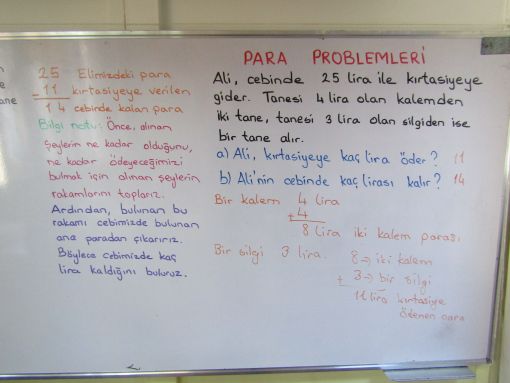 PARA PROBLEMLERİ
25 Elimizdeki para
- 11 kırtasiyeye verilen
14 cebinde kalan para
Bilgi notu: Önce, alınan
şeylerin ne kadar olduğunu,
ne kadar ödeyeceğimizi
bulmak için alınan şeylerin
rakamlarını toplarız.
Ardından, bulunan bu
rakamı cebimizde bulunan
ana paradan çıkarırız.
Böylece cebimizde kaç
lira kaldığını buluruz.
Ali, cebinde 25 lira ile kırtasiyeye
gider. Tanesi 4 lira olan kalemden
iki tane, tanesi 3 lira olan silgiden ise
bir tane alır.
a) Ali, kırtasiyeye kaç lira öder? 11
b) Ali'nin cebinde kaç lirası kalır? 14
Bir kalem 4 lira
+ 4
8 lira iki kalem parası
Bir silgi 3 lira. 8 → iki kalem
+ 3 → bir silgi
11 lira kırtasiye
ödenen para